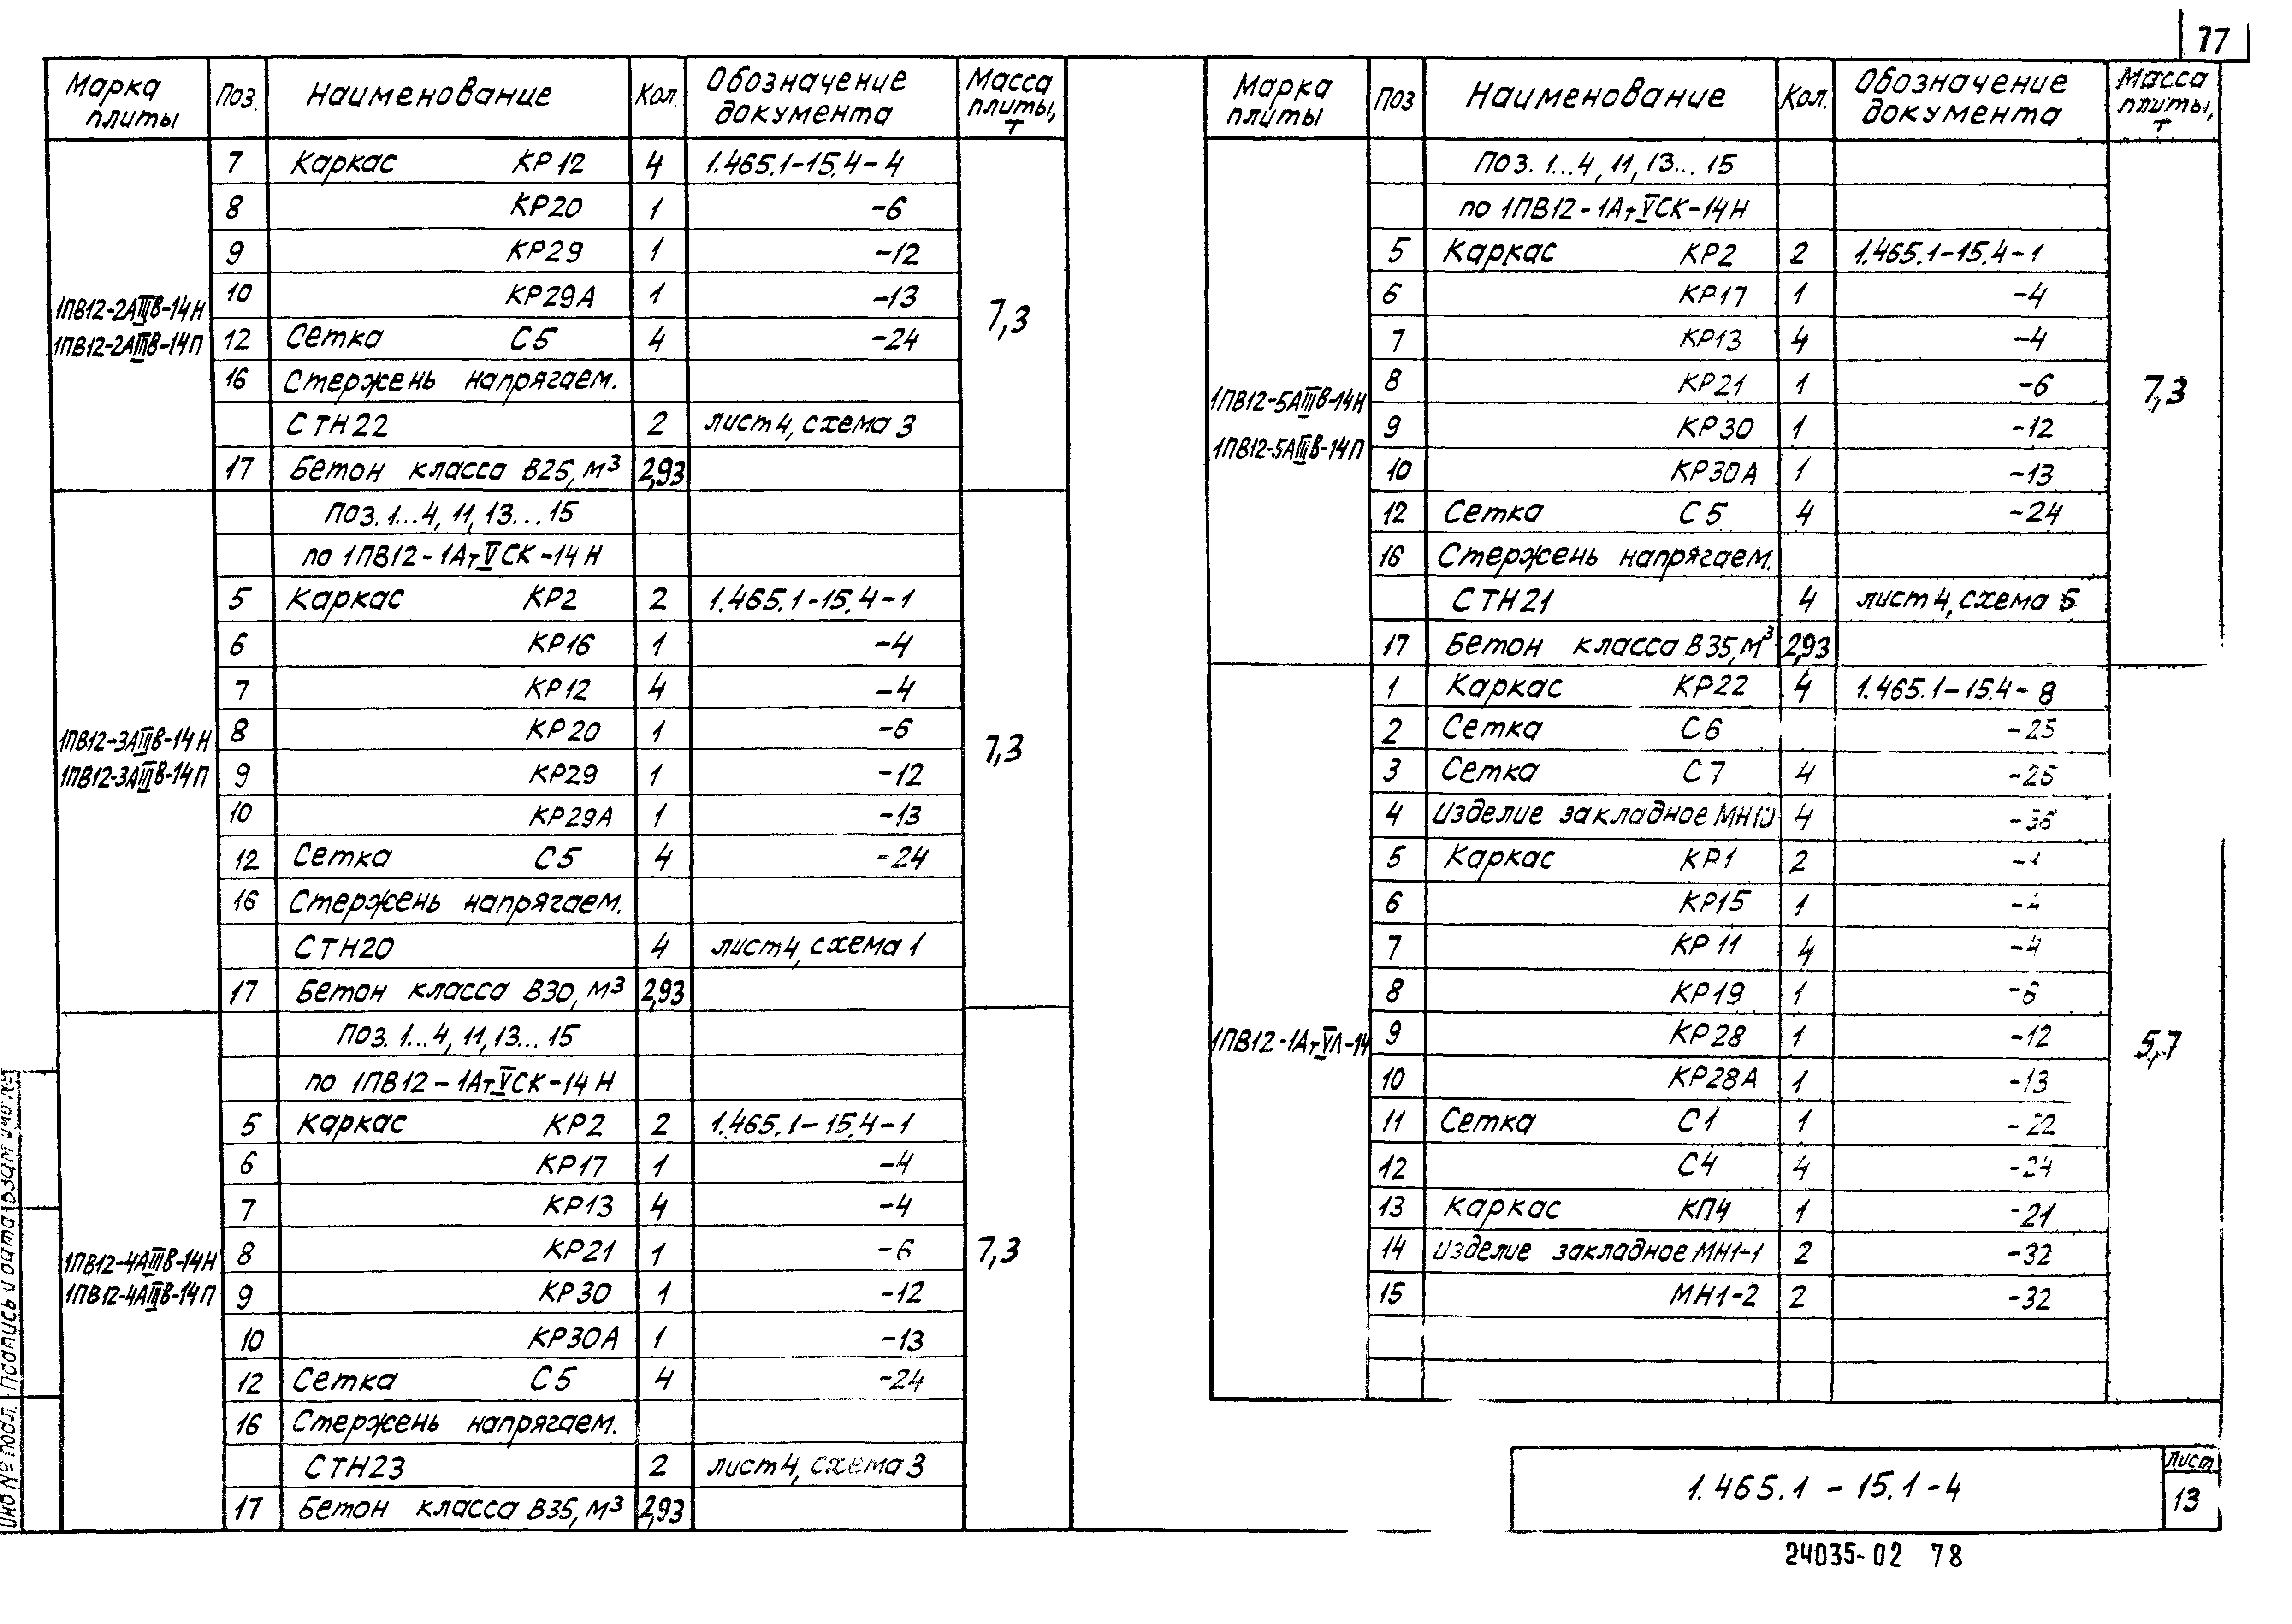 77
Марка плиты | Поз. | Наименование | Кол. | Обозначение документа | Масса плиты, т
1ПВ12-2АIIIВ-14Н
1ПВ12-2АIIIВ-14П
7,3
7 Каркас КР12 4 1.465.1-15.4-4
8 КР20 1 -6
9 КР29 1 -12
10 КР29А 1 -13
12 Сетка С5 4 -24
16 Стержень напрягаем.
СТН22 2 лист 4, схема 3
17 Бетон класса В25, м³ 2,93
1ПВ12-3АIIIВ-14Н
1ПВ12-3АIIIВ-14П
7,3
Поз. 1...4, 11, 13...15
по 1ПВ12-1АтVСК-14Н
5 Каркас КР2 2 1.465.1-15.4-1
6 КР16 1 -4
7 КР12 4 -4
8 КР20 1 -6
9 КР29 1 -12
10 КР29А 1 -13
12 Сетка С5 4 -24
16 Стержень напрягаем.
СТН20 4 лист 4, схема 1
17 Бетон класса В30, м³ 2,93
1ПВ12-4АIIIВ-14Н
1ПВ12-4АIIIВ-14П
7,3
Поз. 1...4, 11, 13...15
по 1ПВ12-1АтVСК-14Н
5 Каркас КР2 2 1.465.1-15.4-1
6 КР17 1 -4
7 КР13 4 -4
8 КР21 1 -6
9 КР30 1 -12
10 КР30А 1 -13
12 Сетка С5 4 -24
16 Стержень напрягаем.
СТН23 2 лист 4, схема 3
17 Бетон класса В35, м³ 2,93
Марка плиты | Поз | Наименование | Кол. | Обозначение документа | Масса плиты, т
1ПВ12-5АIIIВ-14Н
1ПВ12-5АIIIВ-14П
7,3
Поз. 1...4, 11, 13...15
по 1ПВ12-1АтVСК-14Н
5 Каркас КР2 2 1.465.1-15.4-1
6 КР17 1 -4
7 КР13 4 -4
8 КР21 1 -6
9 КР30 1 -12
10 КР30А 1 -13
12 Сетка С5 4 -24
16 Стержень напрягаем.
СТН21 4 лист 4, схема 5
17 Бетон класса В35, м³ 2,93
1ПВ12-1АтVЛ-14
5,7
1 Каркас КР22 4 1.465.1-15.4-8
2 Сетка С6 -25
3 Сетка С7 4
4 Изделие закладное 4 -36
5 Каркас КР1 2
6 КР15 1
7 КР11 4 -4
8 КР19 1 -6
9 КР28 1 -12
10 КР28А 1 -13
11 Сетка С1 1 -22
12 С4 4 -24
13 Каркас КП4 1 -21
14 Изделие закладное МН1-1 2 -32
15 МН1-2 2 -32
Инв № подл. Подпись и дата Взам инв №
1.465.1-15.1-4
Лист
13
24035-02 78